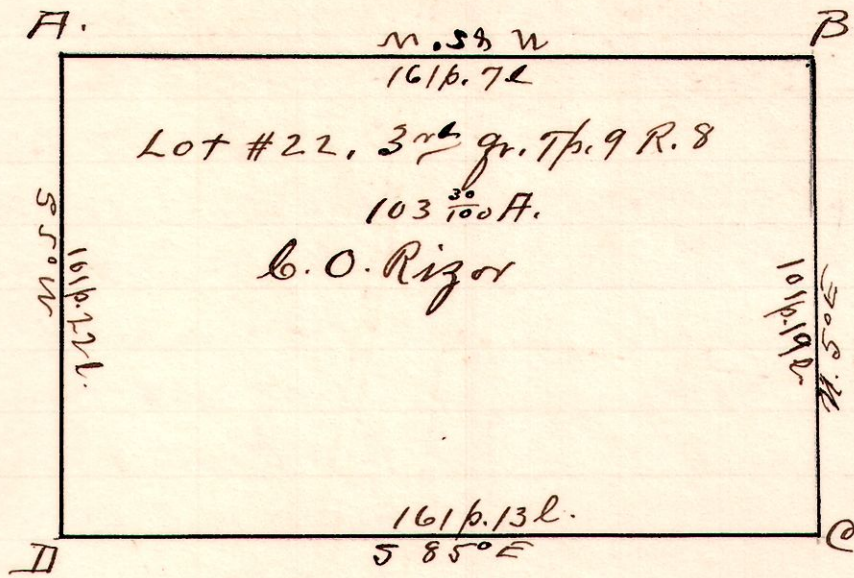 A.
B
N. 58 W
161p. 7l
Lot #22. 3rd qr. Tp. 9 R. 8
103 30/100 A.
C. O. Rizor
S 5° W
161p. 22l.
101p. 19l
N. 5° E
161p. 13l.
S 85° E
D
C